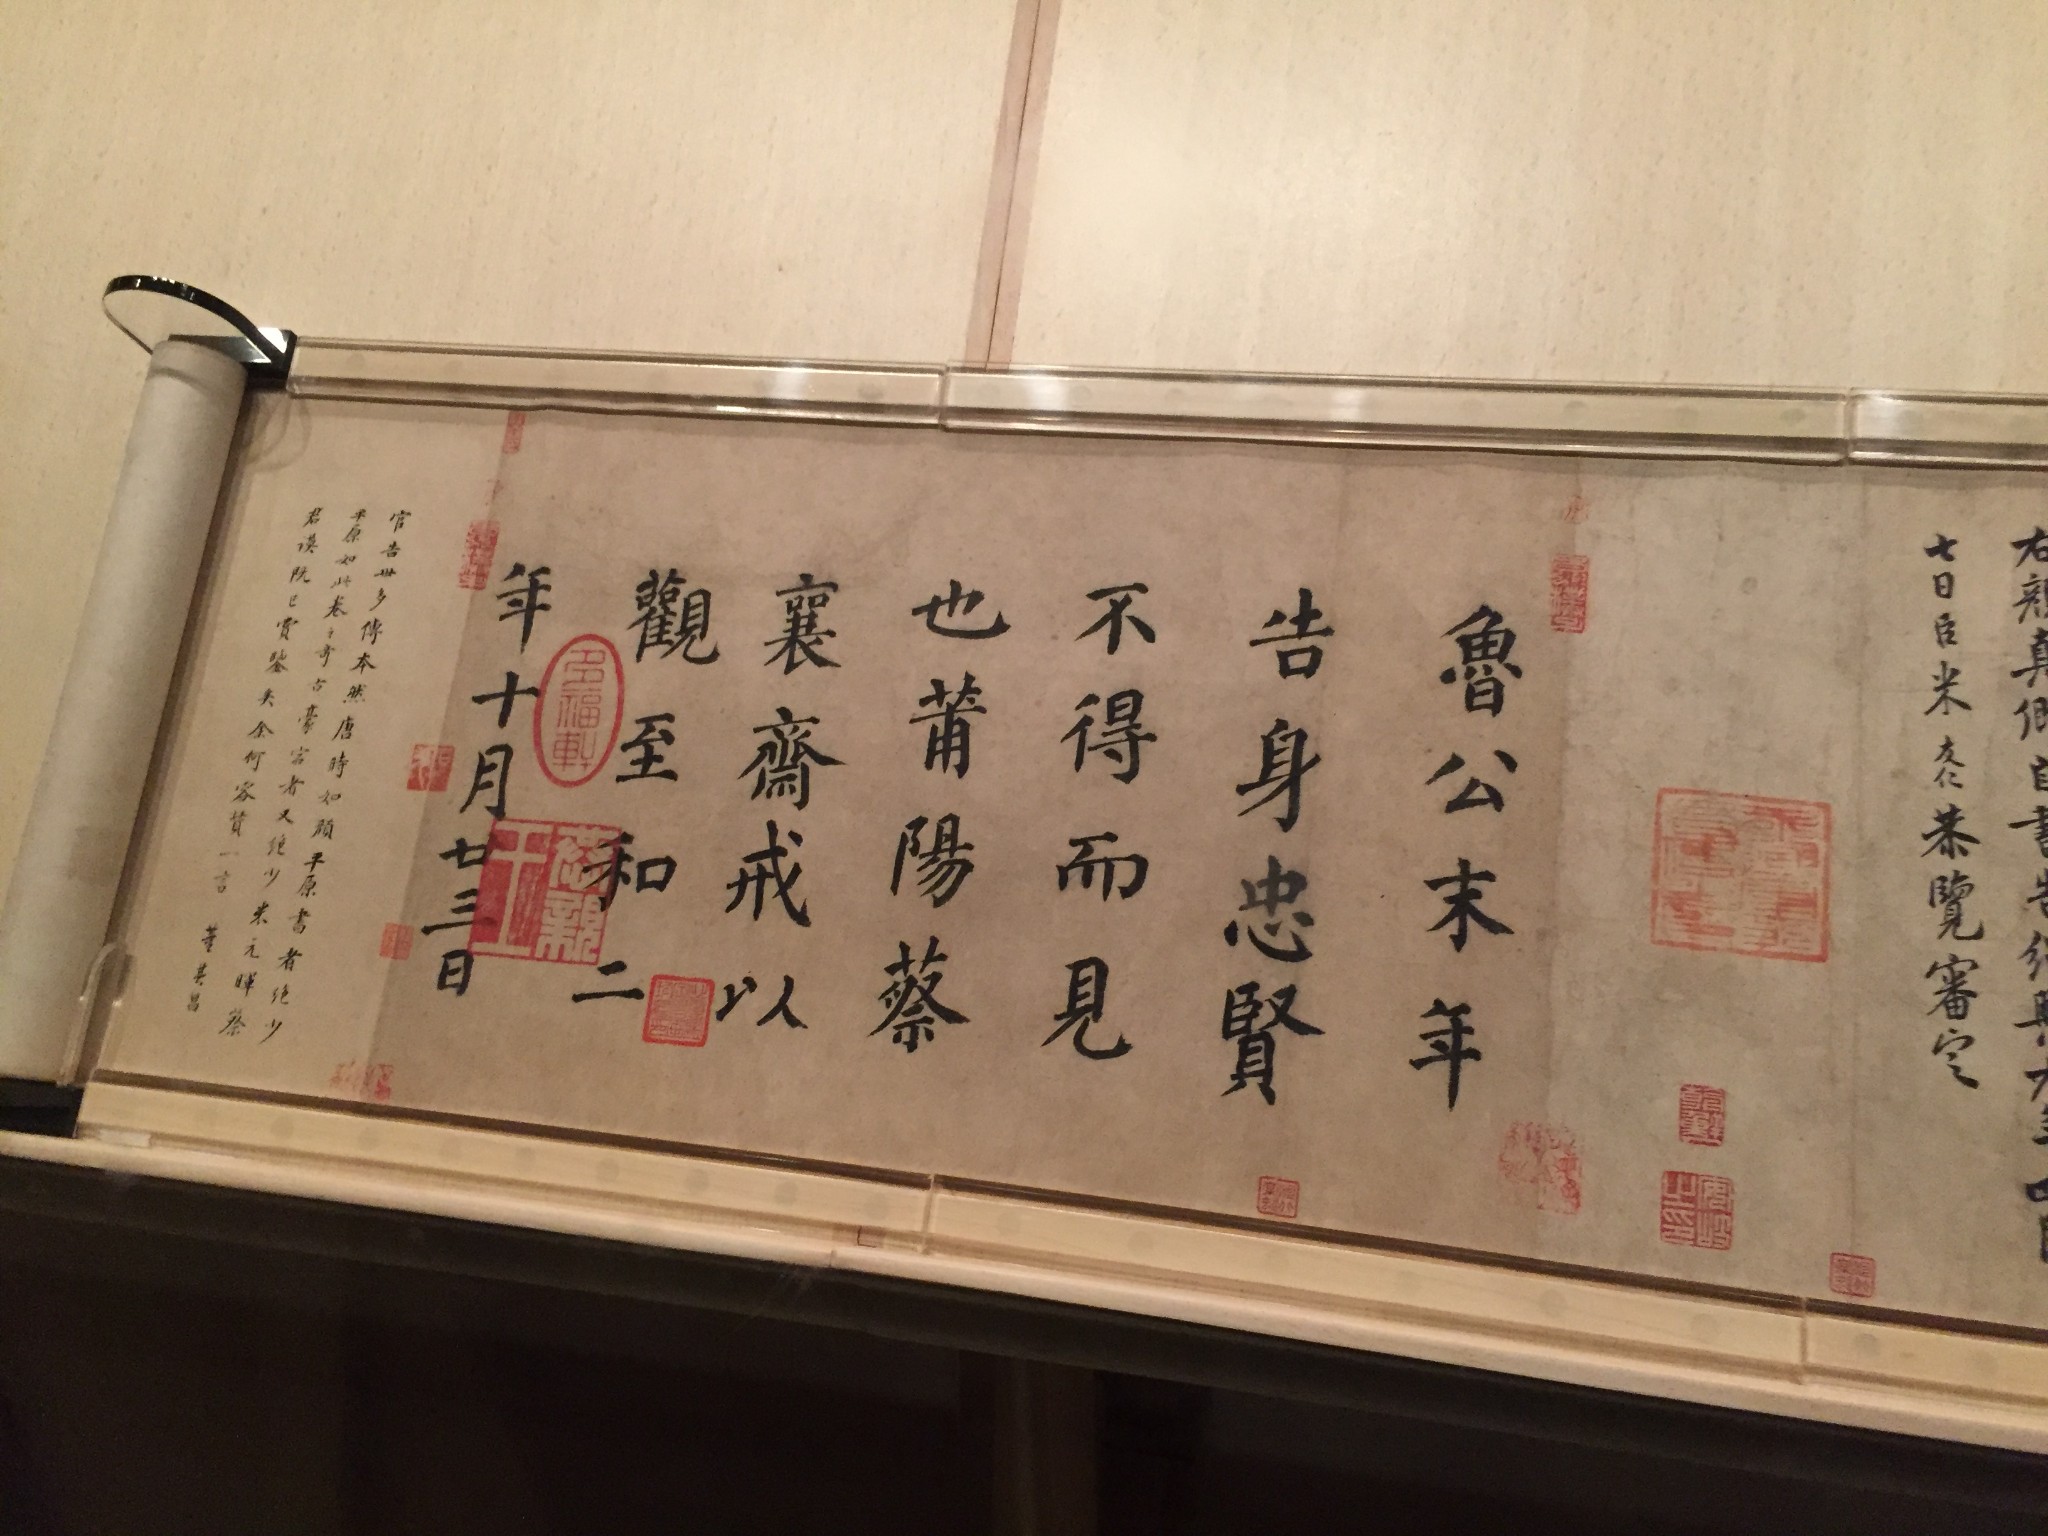 右顏真卿自書告紹興九年四月
七日臣米友仁恭覽審定
魯公末年
告身忠賢
不得而見
也莆陽蔡
襄齋戒以
觀至和二
年十月廿三日
官告世多傳本然唐時如顏平原書者絕少
平原如此卷之奇古豪宕者又絕少米元暉蔡
君謨既已賞鑒矣余何容贊一言 董其昌
多福軒